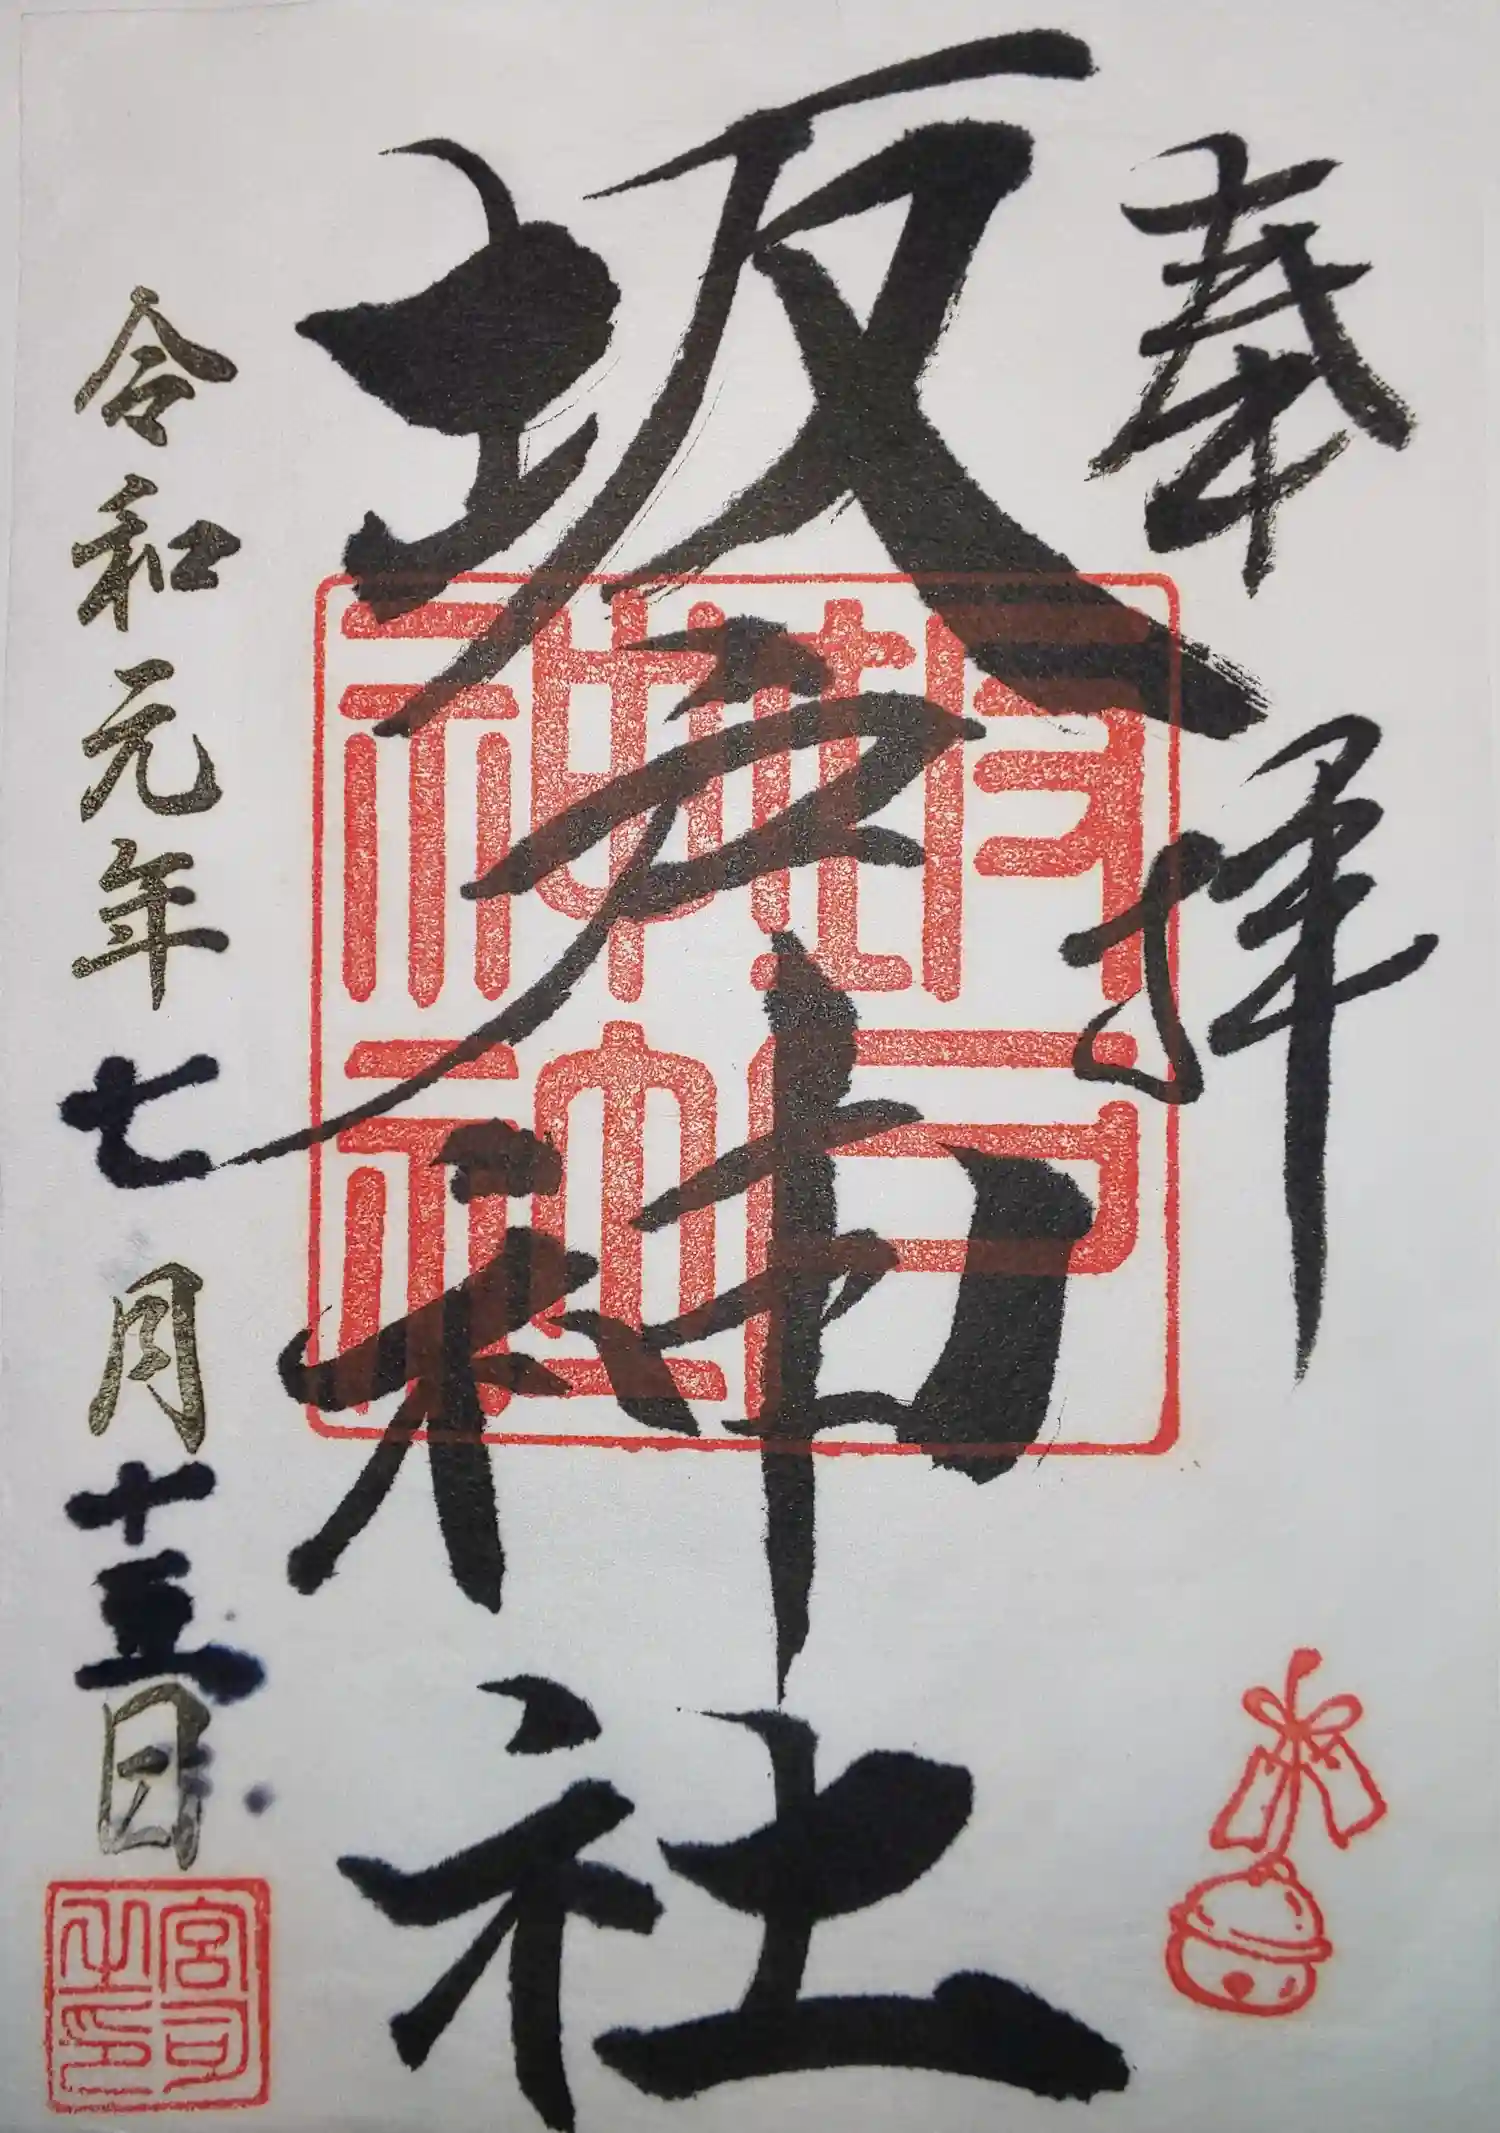 奉拝
坂戸神社
令和元年七月十五日
宮司之印